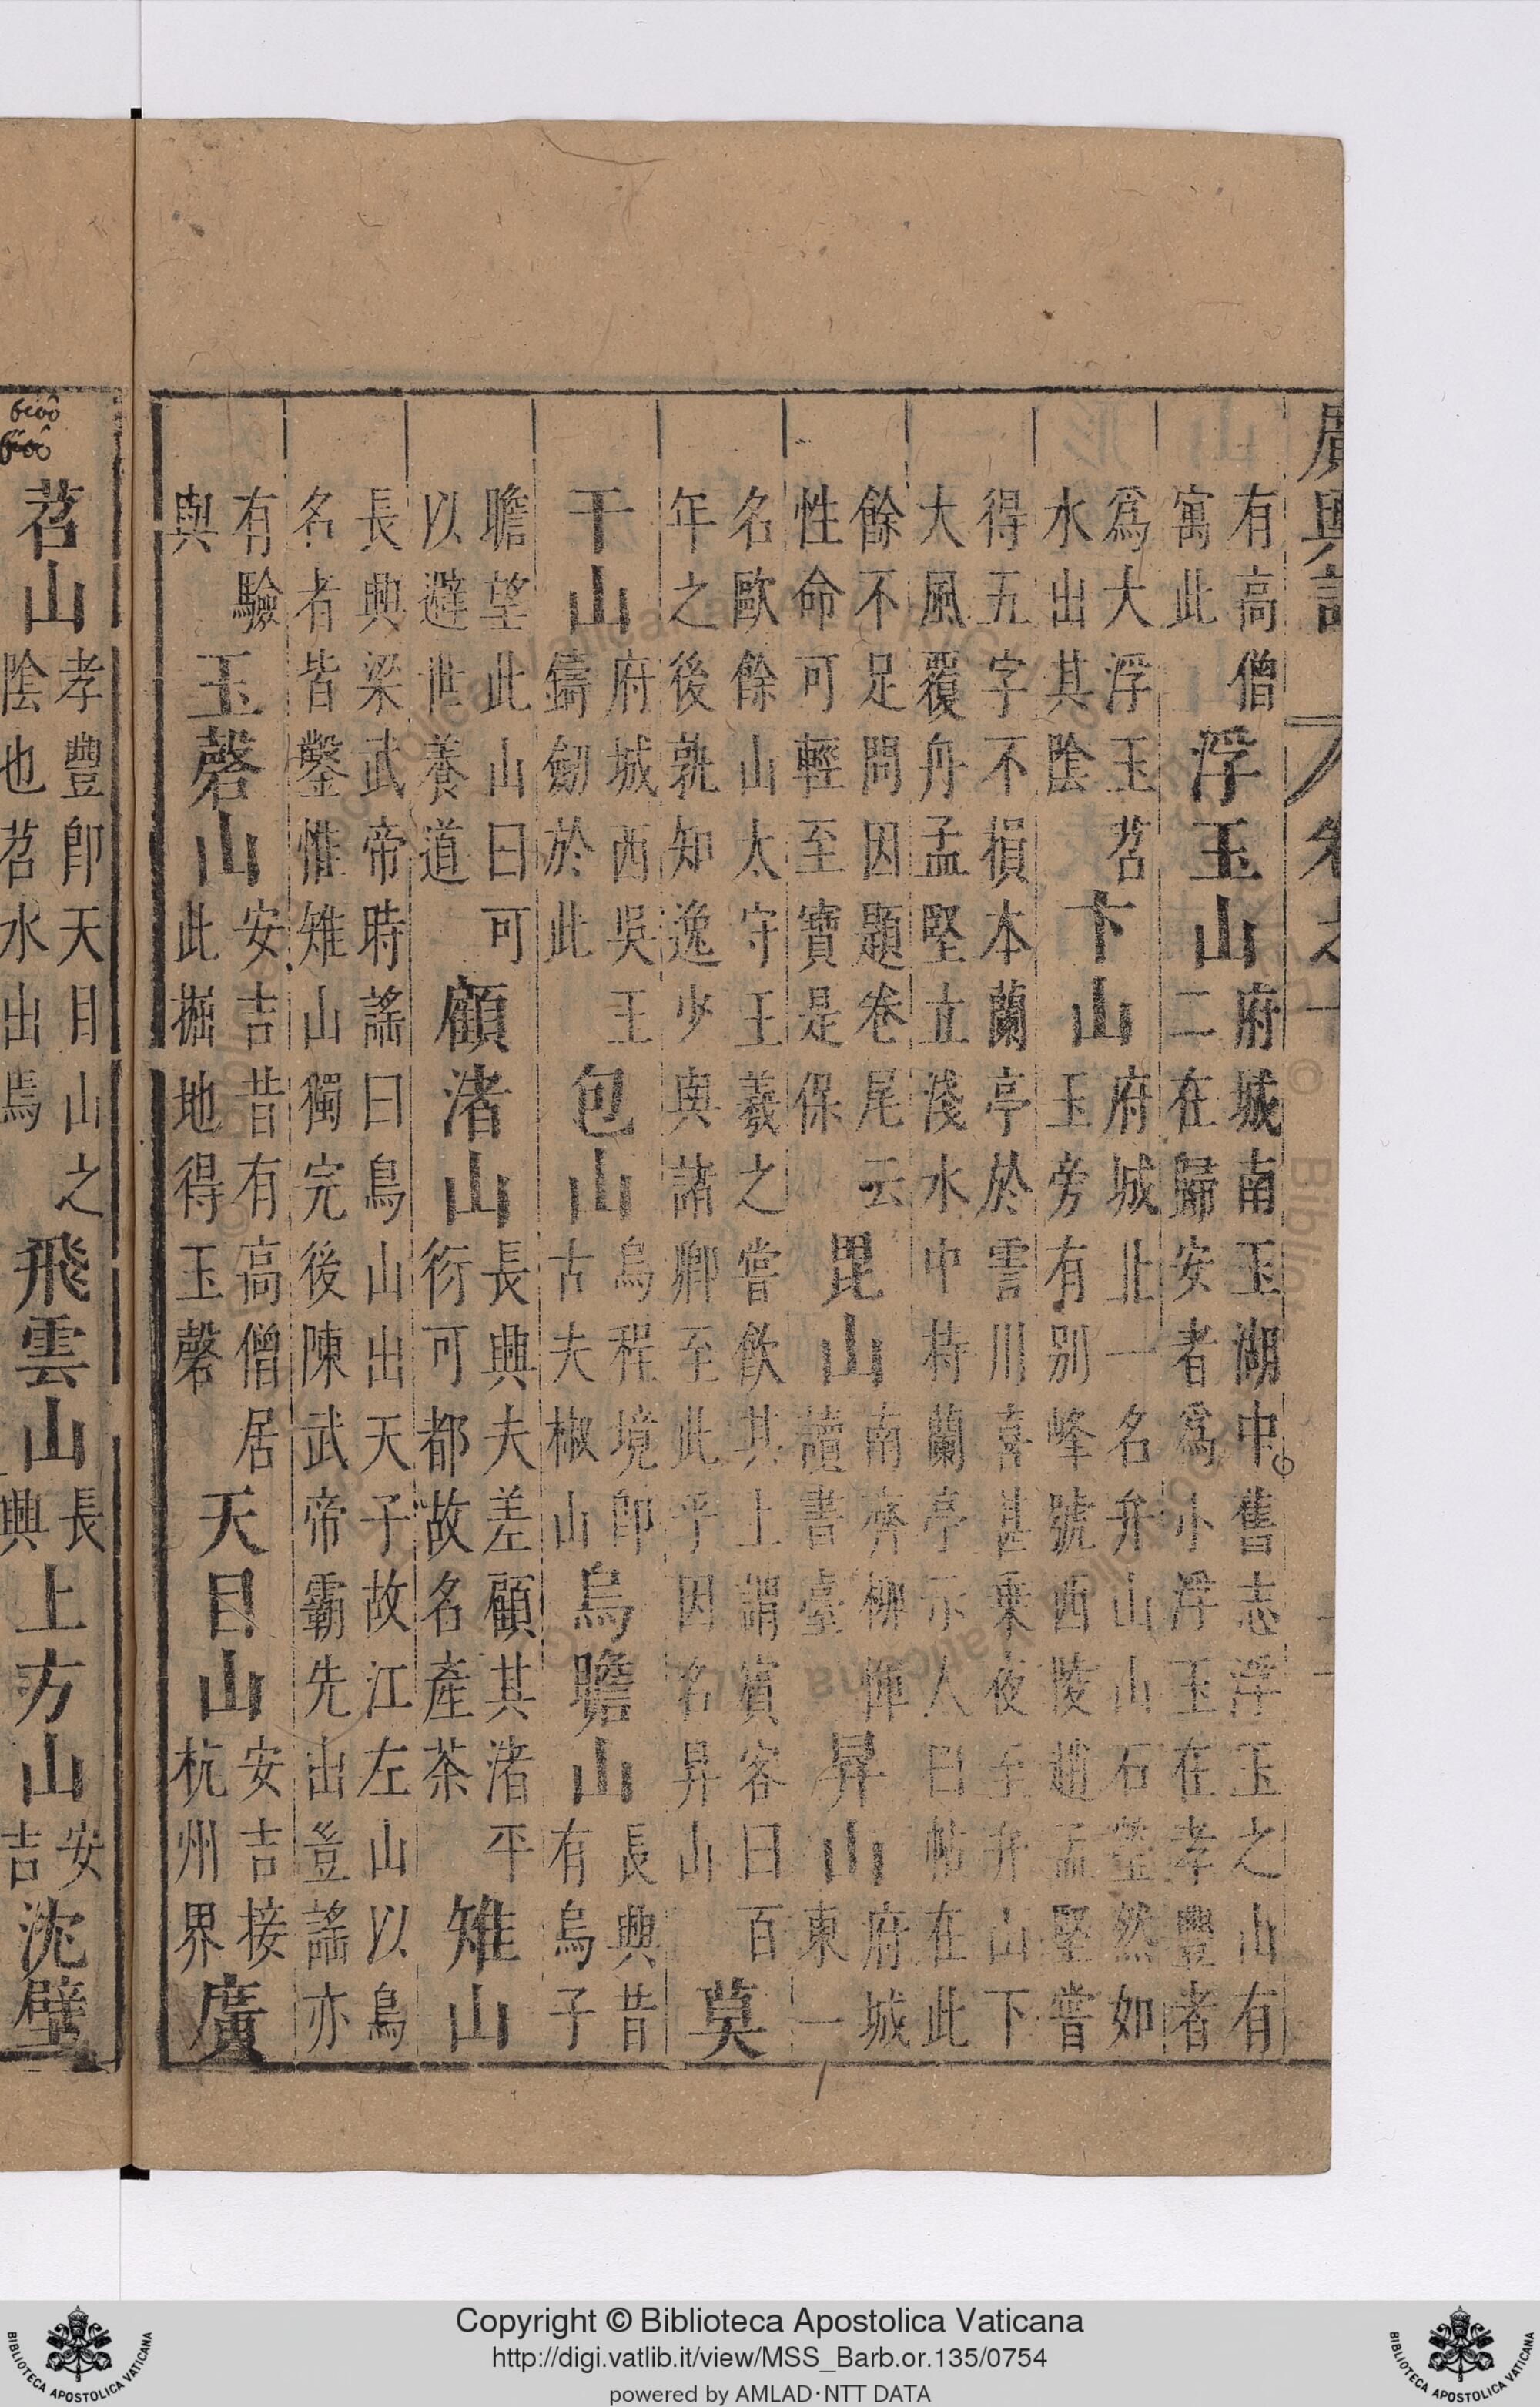 廣輿記 卷之十
有高僧寓此 浮玉山 府城南玉湖中舊志浮玉之山有二在歸安者爲小浮玉在孝豐者
爲大浮玉苕水出其陰 卞山 府城北一名弁山山石瑩然如玉旁有别峰號西陵趙孟堅嘗
得五字不損本蘭亭於霅川喜甚乘夜至弁山下大風覆舟孟堅立淺水中持蘭亭示人曰帖在此
餘不足問因題卷尾云性命可輕至寶是保 毘山 南齊柳惲讀書臺 昇山 府城東一
名歐餘山太守王羲之嘗飲其上謂賓客曰百年之後孰知逸少與諸卿至此乎因名昇山 莫
干山 府城西吳王鑄劒於此 包山 烏程境即古夫椒山 烏瞻山 長興昔有烏子
瞻望此山曰可以避世養道 顧渚山 長興夫差顧其渚平衍可都故名產茶 雉山
長興梁武帝時謠曰鳥山出天子故江左山以鳥名者皆鑿惟雉山獨完後陳武帝霸先出豈謠亦
有驗與 玉磬山 安吉昔有高僧居此掘地得玉磬 天目山 安吉接杭州界 廣
苕山 孝豐即天目山之陰也苕水出焉 飛雲山 長興 上方山 安吉 沈壁
Copyright © Biblioteca Apostolica Vaticana
http://digi.vatlib.it/view/MSS_Barb.or.135/0754
powered by AMLAD·NTT DATA
BIBLIOTECA APOSTOLICA VATICANA
BIBLIOTECA APOSTOLICA VATICANA